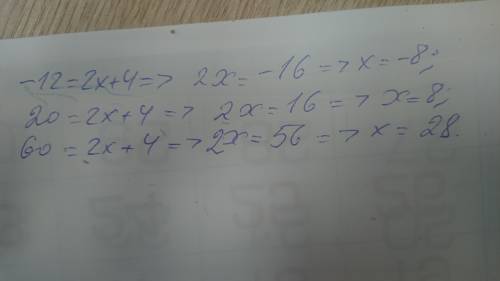 -12=2x+4=> 2x=-16=>x=-8;
20=2x+4=> 2x=16=>x=8;
60=2x+4=>2x=56=>x=28.